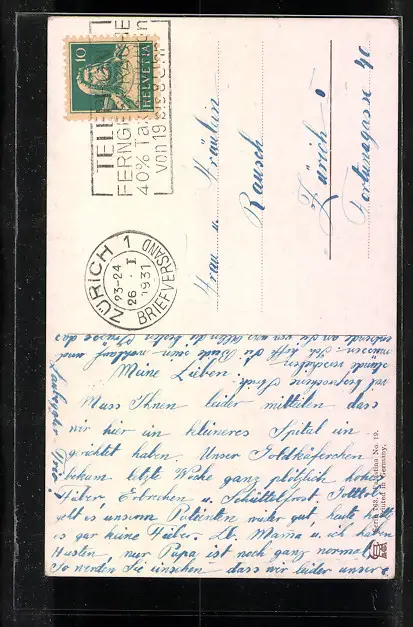 10
HELVETIA
TEILN
FERNGE
40% Tax
von 19
ZÜRICH 1
23-24
26. I
1931
BRIEFVERSAND
Frau u. Fräulein
Rausch
Zürich 5
Fortunagasse 40
Meine Lieben!
Muss Ihnen leider mitteilen dass
wir hier ein kleineres Spital ein-
gerichtet haben. Unser Goldkäferchen
bekam letzte Woche ganz plötzlich hohes
Fieber, Erbrechen u. Schüttelfrost. Gottlob
geht es unserm Patienten wieder gut, heute hatt
es gar keine Fieber. Lb. Mama u. ich haben
Husten, nur Papa ist noch ganz normal.
So werden Sie einsehen dass wir leider unsere
No. 12.
Printed in Germany.